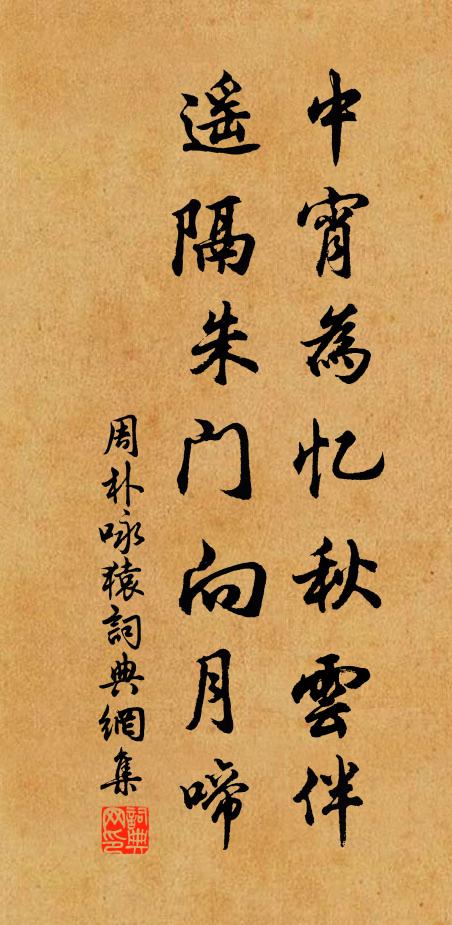 中宵為忆秋雲伴
遥隔朱门向月啼
周朴咏猿詞典網集
詞典网印